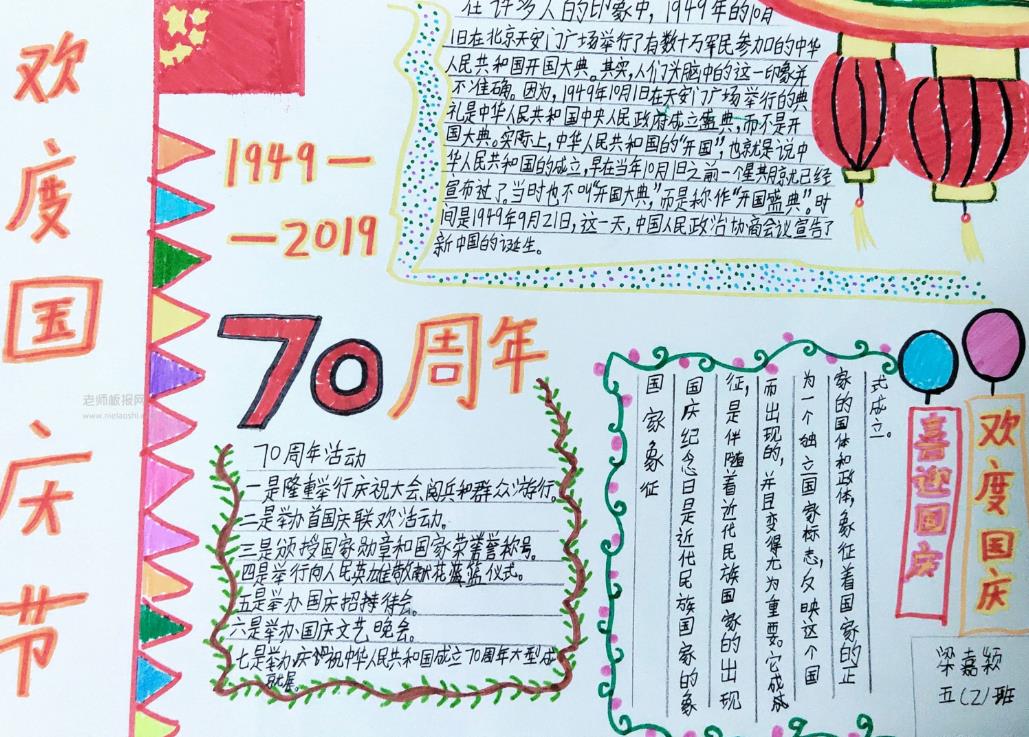 欢度国庆节
1949—
—2019
在许多人的印象中,1949年的10月
1日在北京天安门广场举行了有数十万军民参加的中华
人民共和国开国大典。其实,人们头脑中的这一印象并
不准确。因为,1949年10月1日在天安门广场举行的典
礼是中华人民共和国中央人民政府成立盛典,而不是开
国大典。实际上,中华人民共和国的“开国”,也就是说中
华人民共和国的成立,早在当年10月1日之前一个星期就已经
宣布过了。当时也不叫“开国大典”,而是称作“开国盛典”。时
间是1949年9月21日,这一天,中国人民政治协商会议宣告了
新中国的诞生。
70周年
70周年活动
一是隆重举行庆祝大会、阅兵和群众游行。
二是举办首国庆联欢活动。
三是颁授国家勋章和国家荣誉称号。
四是举行向人民英雄敬献花篮仪式。
五是举办国庆招待会。
六是举办国庆文艺晚会。
七是举办庆祝中华人民共和国成立70周年大型成
就展。
国家象征
国庆纪念日是近代民族国家的象
征,是伴随着近代民族国家的出现
而出现的,并且变得尤为重要。它成
为一个独立国家标志,反映这个国
家的国体和政体,象征着国家的正
式成立。
喜迎国庆
欢度国庆
梁嘉颖
五(2)班
老师板报网